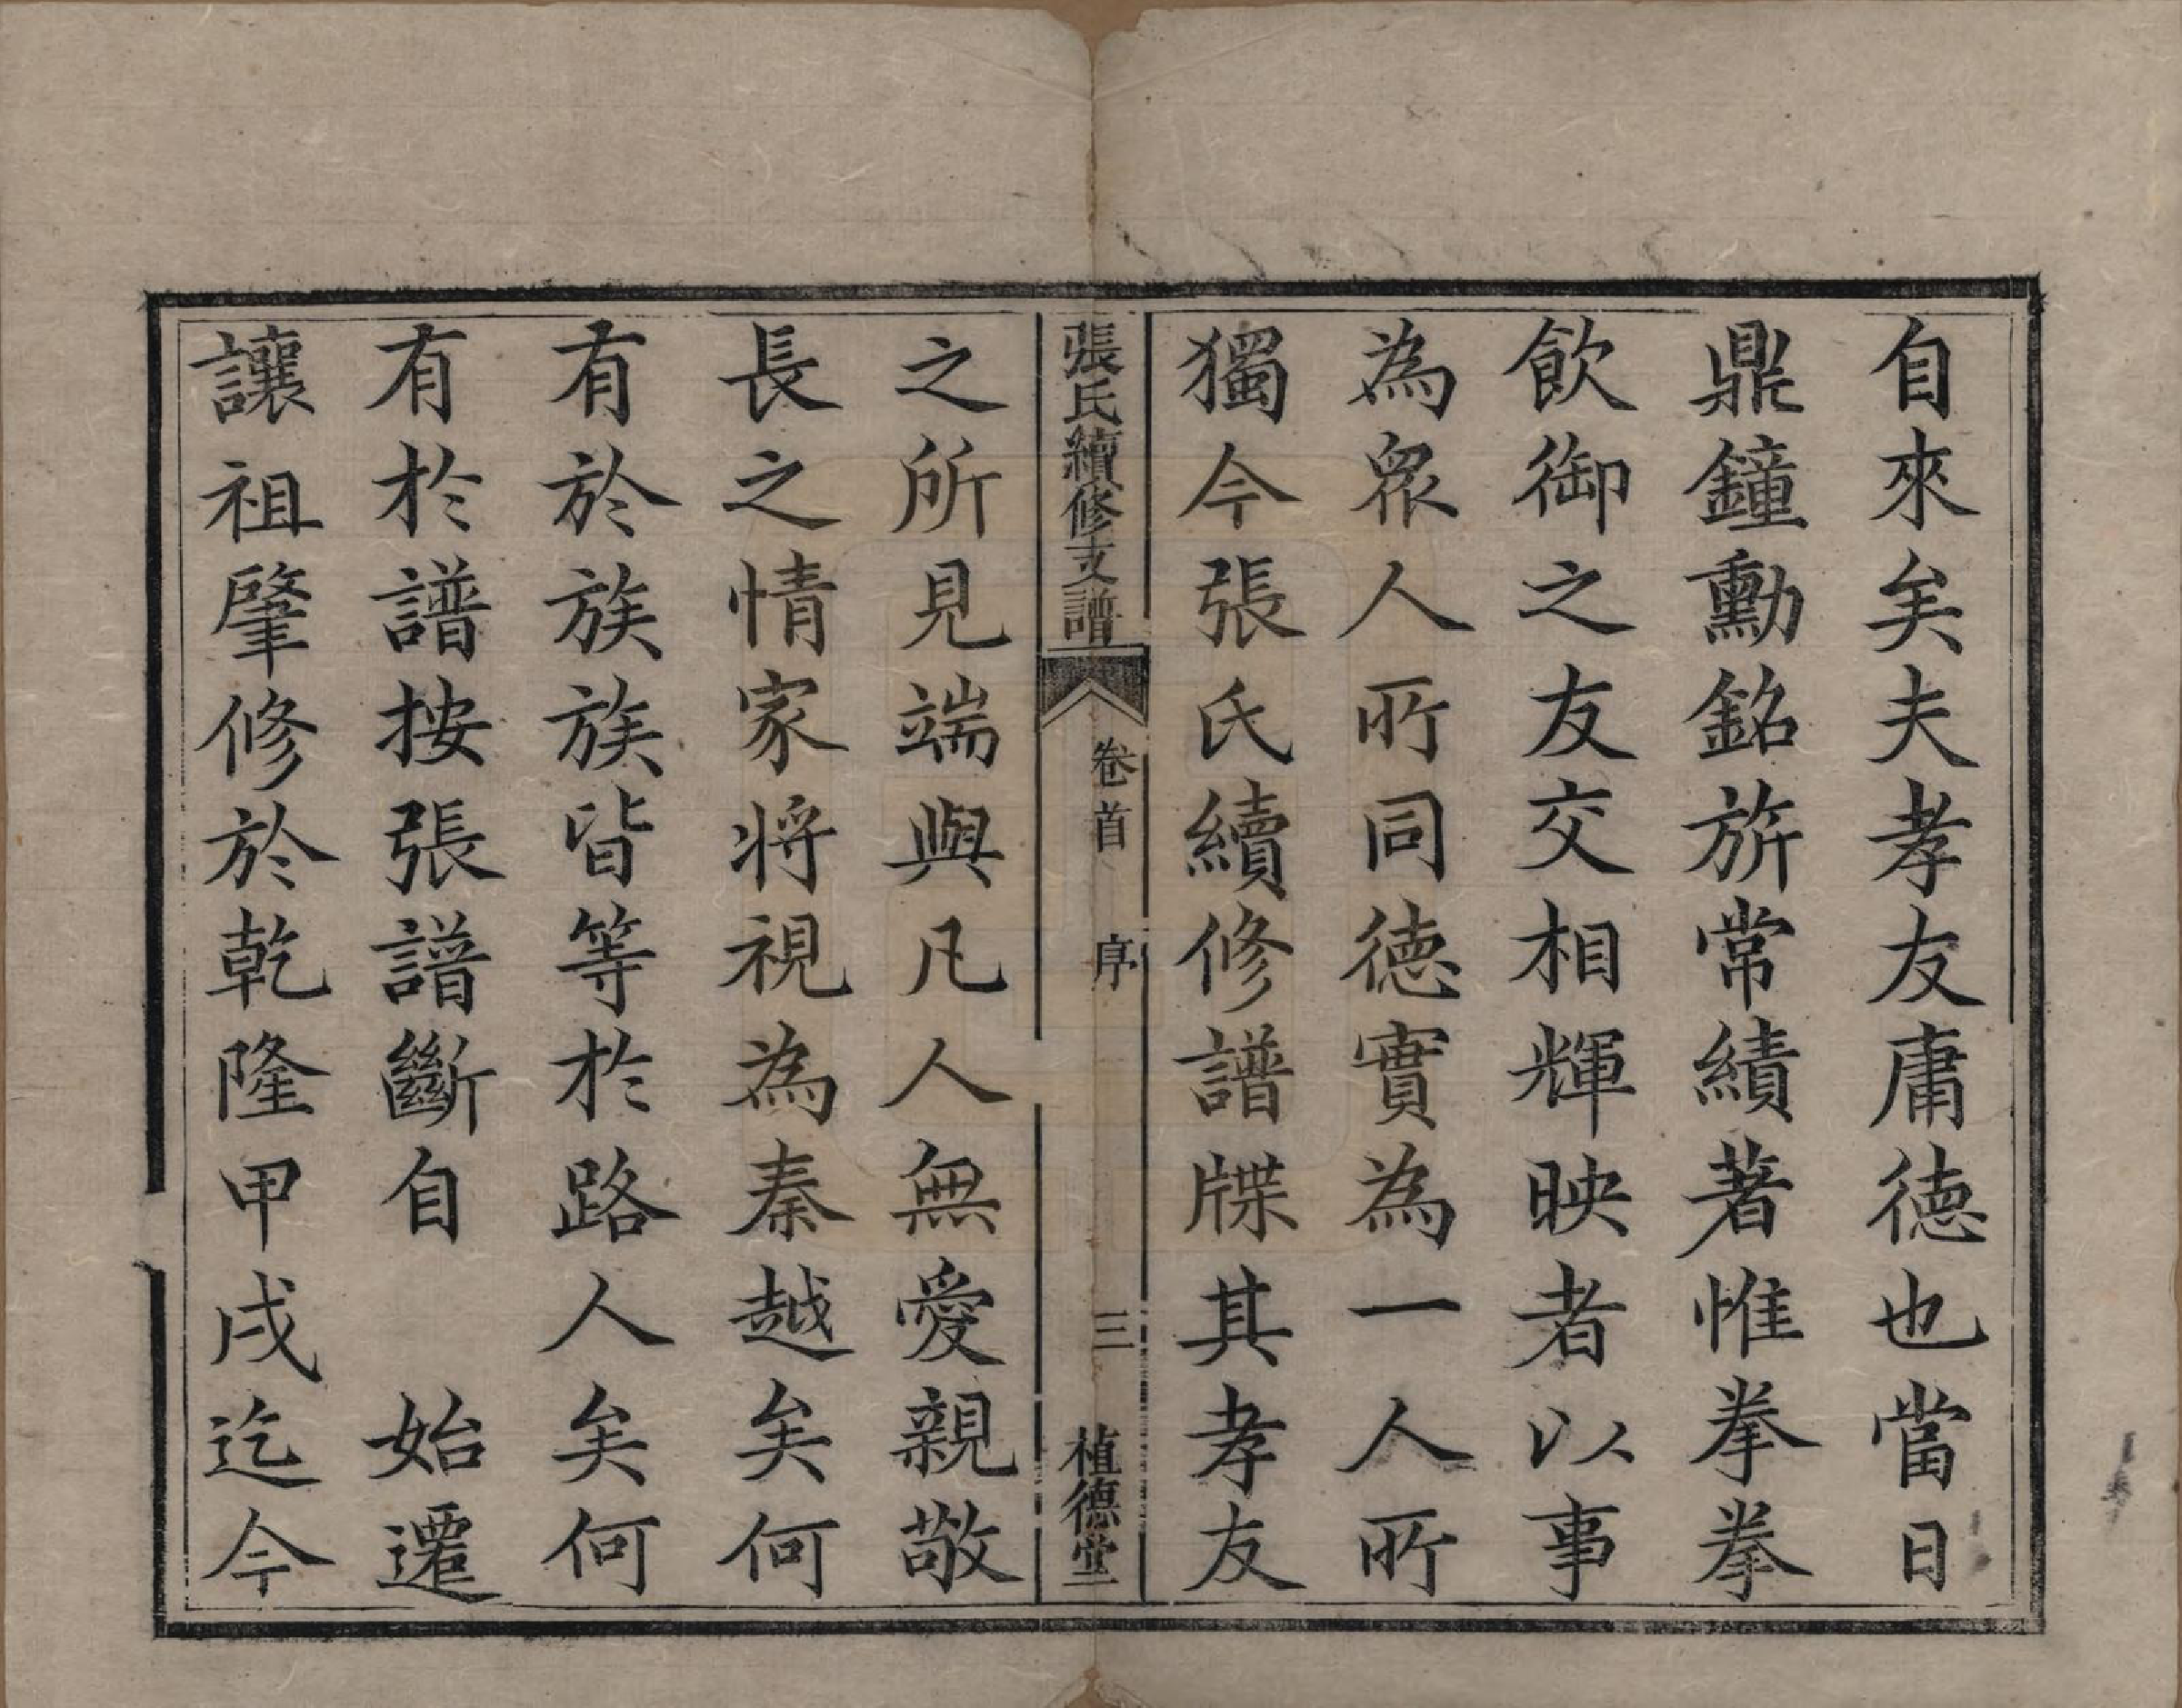 自來矣夫孝友庸德也當日
鼎鐘勳銘旂常績著惟拳拳
飲御之友交相輝映者以事
為眾人所同德實為一人所
獨今張氏續修譜牒其孝友
張氏續修支譜 卷首 序 三 植德堂
之所見端與凡人無愛親敬
長之情家將視為秦越矣何
有於族族皆等於路人矣何
有於譜按張譜斷自 始遷
讓祖肇修於乾隆甲戌迄今